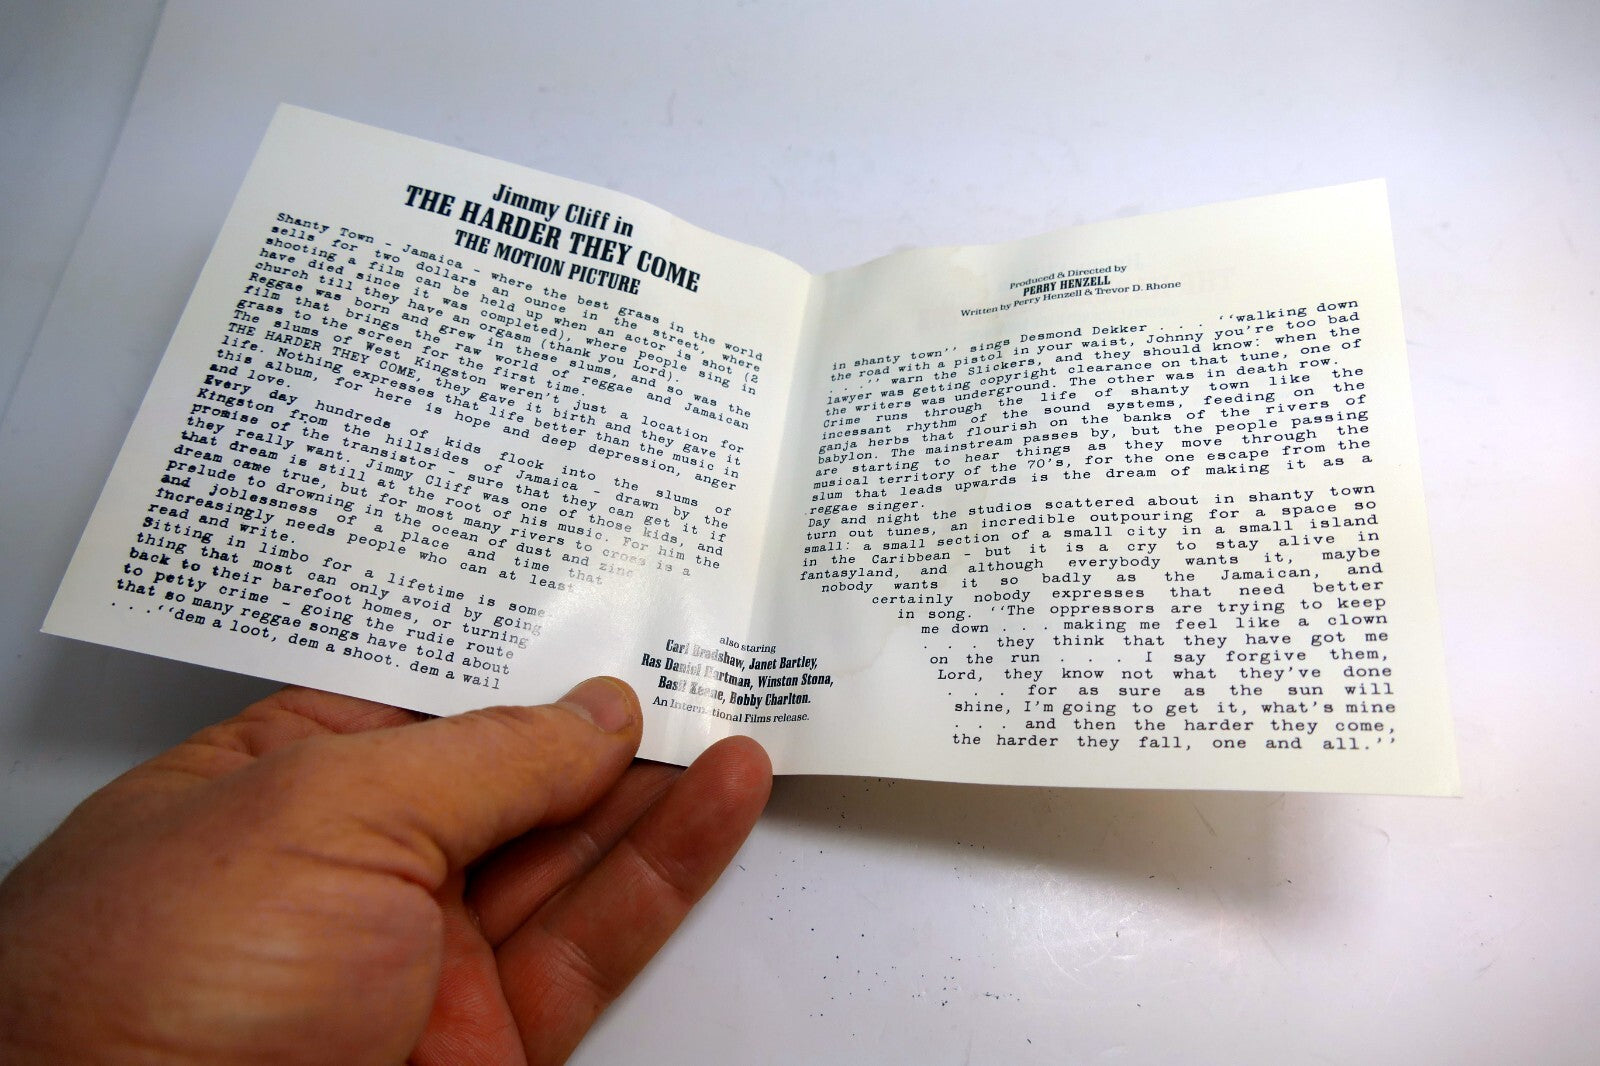 Jimmy Cliff in
THE HARDER THEY COME
THE MOTION PICTURE
Shanty Town - Jamaica - where the best grass in the world
sells for two dollars an ounce in the street, where
shooting a film can be held up when an actor is shot (2
have died since it was completed), where people sing in
church till they have an orgasm (thank you Lord).
Reggae was born and grew in these slums, and so was the
film that brings the raw world of reggae and Jamaican
grass to the screen for the first time.
The slums of West Kingston weren't just a location for
THE HARDER THEY COME, they gave it birth and they gave it
life. Nothing expresses that life better than the music in
this album, for here is hope and deep depression, anger
and love.
Every day hundreds of kids flock into the slums of
Kingston from the hillsides of Jamaica - drawn by the
promise of the transistor - sure that they can get it if
they really want. Jimmy Cliff was one of those kids, and
that dream is still at the root of his music. For him the
dream came true, but for most many rivers to cross is a
prelude to drowning in the ocean of dust and zinc
and joblessness of a place and time that
increasingly needs people who can at least
read and write.
Sitting in limbo for a lifetime is some-
thing that most can only avoid by going
back to their barefoot homes, or turning
to petty crime - going the rudie route
that so many reggae songs have told about
. . .''dem a loot, dem a shoot. dem a wail
also starring
Carl Bradshaw, Janet Bartley,
Ras Daniel Hartman, Winston Stona,
Basil Keane, Bobby Charlton.
An International Films release.
Produced & Directed by
PERRY HENZELL
Written by Perry Henzell & Trevor D. Rhone
in shanty town'' sings Desmond Dekker . . . ''walking down
the road with a pistol in your waist, Johnny you're too bad
. . .'' warn the Slickers, and they should know: when the
lawyer was getting copyright clearance on that tune, one of
the writers was underground. The other was in death row.
Crime runs through the life of shanty town like the
incessant rhythm of the sound systems, feeding on the
ganja herbs that flourish on the banks of the rivers of
babylon. The mainstream passes by, but the people passing
are starting to hear things as they move through the
musical territory of the 70's, for the one escape from the
slum that leads upwards is the dream of making it as a
.reggae singer.
Day and night the studios scattered about in shanty town
turn out tunes, an incredible outpouring for a space so
small: a small section of a small city in a small island
in the Caribbean - but it is a cry to stay alive in
fantasyland, and although everybody wants it, maybe
nobody wants it so badly as the Jamaican, and
certainly nobody expresses that need better
in song. ''The oppressors are trying to keep
me down . . . making me feel like a clown
. . . they think that they have got me
on the run . . . I say forgive them,
Lord, they know not what they've done
. . . for as sure as the sun will
shine, I'm going to get it, what's mine
. . . and then the harder they come,
the harder they fall, one and all.''